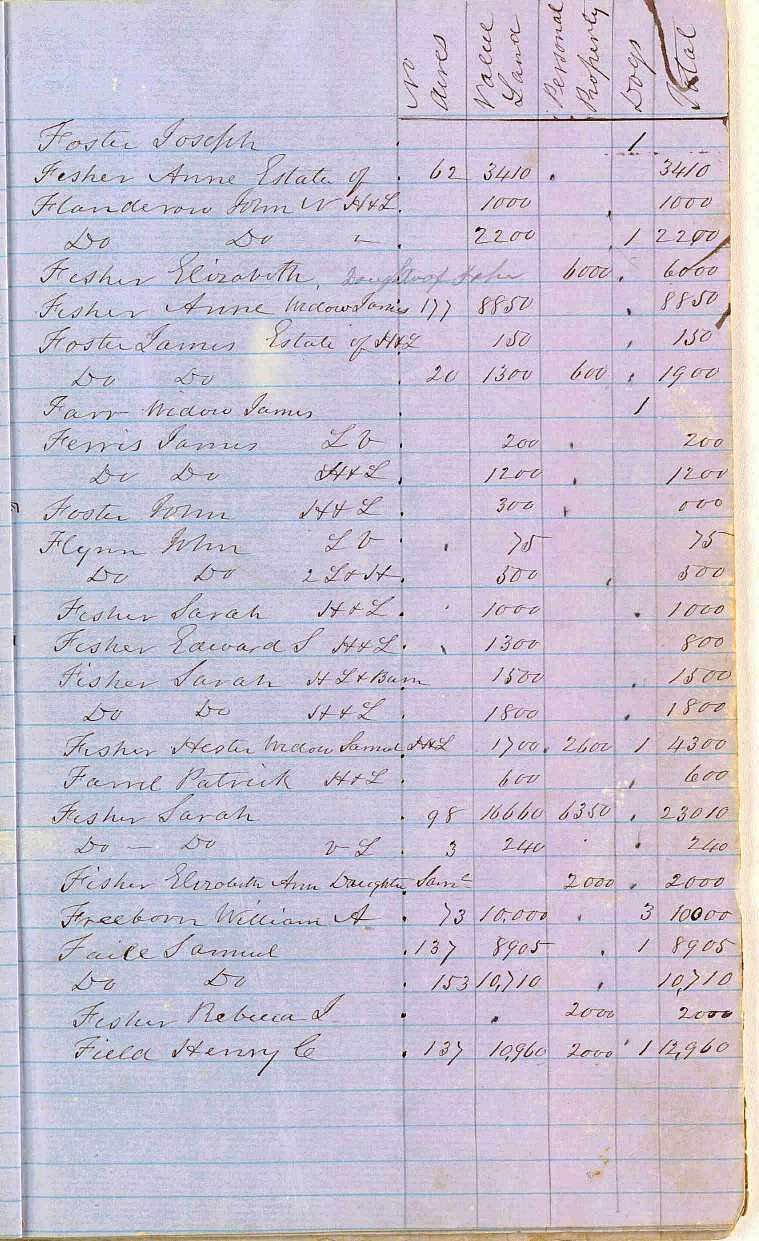 No Acres Value Land Personal Property Dogs Total
Foster Joseph 1
Fisher Anne Estate of 62 3410 3410
John W H&L 1000 1000
Do Do " 2200 1 2200
Fisher Elizabeth Daughter of 6000 6000
Fisher Anne Widow James 177 8850 8850
Foster James Estate of H&L 150 150
Do Do 20 1300 600 1900
Farr Widow James 1
Ferris James L V 200 200
Do Do H&L 1200 1200
Foster John H&L 300 000
Flynn John L V 75 75
Do Do 2 L&H 500 500
Fisher Sarah H&L 1000 1000
Fisher Edward S H&L 1300 800
Fisher Sarah H L & Barn 1500 1500
Do Do H&L 1800 1800
Fisher Hester Widow Samuel H&L 1700 2600 1 4300
Farrel Patrick H&L 600 600
Fisher Sarah 98 16660 6350 23010
Do — Do V L 3 240 240
Fisher Elizabeth Ann Daughter Saml 2000 2000
Freeborn William A 73 10,000 3 10000
Faile Samuel 137 8905 1 8905
Do Do 153 10,710 10,710
Fisher Rebecca J 2000 2000
Field Henry C 137 10,960 2000 1 12,960